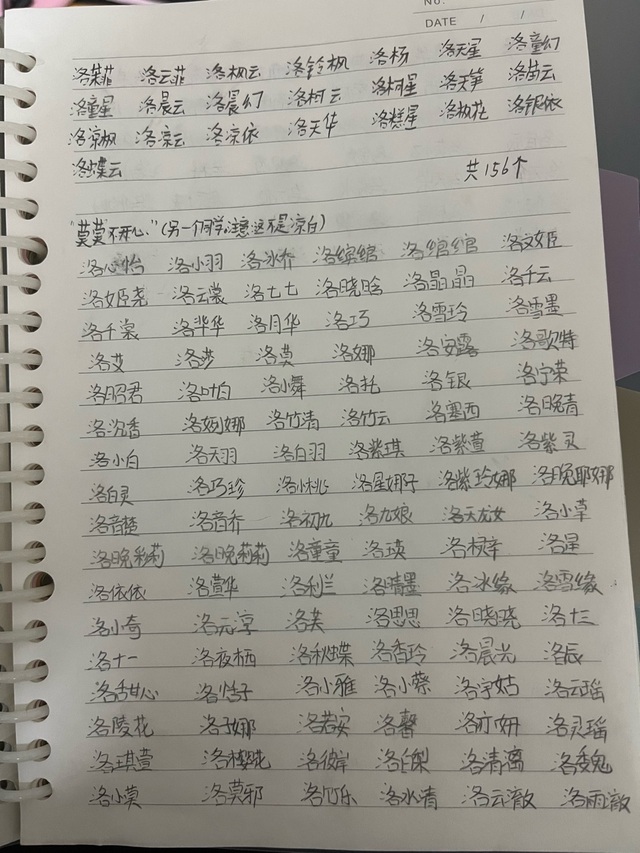 No.
DATE / /
洛茱菲 洛云菲 洛枫云 洛铃枫 洛杨 洛天星 洛童幻
洛童星 洛晨云 洛晨幻 洛柯云 洛柯星 洛天筝 洛苗云
洛凉枫 洛凉云 洛凉依 洛天华 洛糕星 洛枫花 洛银依
洛蝶云 共156个
"莫莫不开心"(另一个同学,注意这不是凉白)
洛心怡 洛小羽 洛冰乔 洛缤缤 洛绾绾 洛文姬
洛姬尧 洛云裳 洛七七 洛晓晗 洛晶晶 洛千云
洛千裳 洛芈华 洛月华 洛巧 洛雪玲 洛雪墨
洛艾 洛莎 洛莫 洛娜 洛安露 洛歌特
洛昭君 洛叶白 洛小舞 洛托 洛银 洛宁荣
洛沉香 洛婀娜 洛竹清 洛竹云 洛塞西 洛晚青
洛小白 洛天羽 洛白羽 洛紫琪 洛紫萱 洛紫灵
洛白灵 洛巧珍 洛小桃 洛星娜子 洛紫玲娜 洛晚耶娜
洛音楚 洛音乔 洛初九 洛九娘 洛天龙女 洛小草
洛晚彩莉 洛晚莉莉 洛童童 洛瑛 洛梓 洛星
洛依依 洛萱华 洛利兰 洛晴墨 洛冰缘 洛雪缘
洛小奇 洛元淳 洛芙 洛思思 洛晓晓 洛十三
洛十一 洛夜栖 洛秋蝶 洛香玲 洛晨光 洛辰
洛甜心 洛恬子 洛小雅 洛小蔡 洛宇姑 洛云瑶
洛陵花 洛子娜 洛若安 洛馨 洛亦妍 洛灵瑶
洛琪萱 洛樱花 洛彼岸 洛白梨 洛清漓 洛香魂
洛小莫 洛莫邪 洛可乐 洛水清 洛云澈 洛雨澈